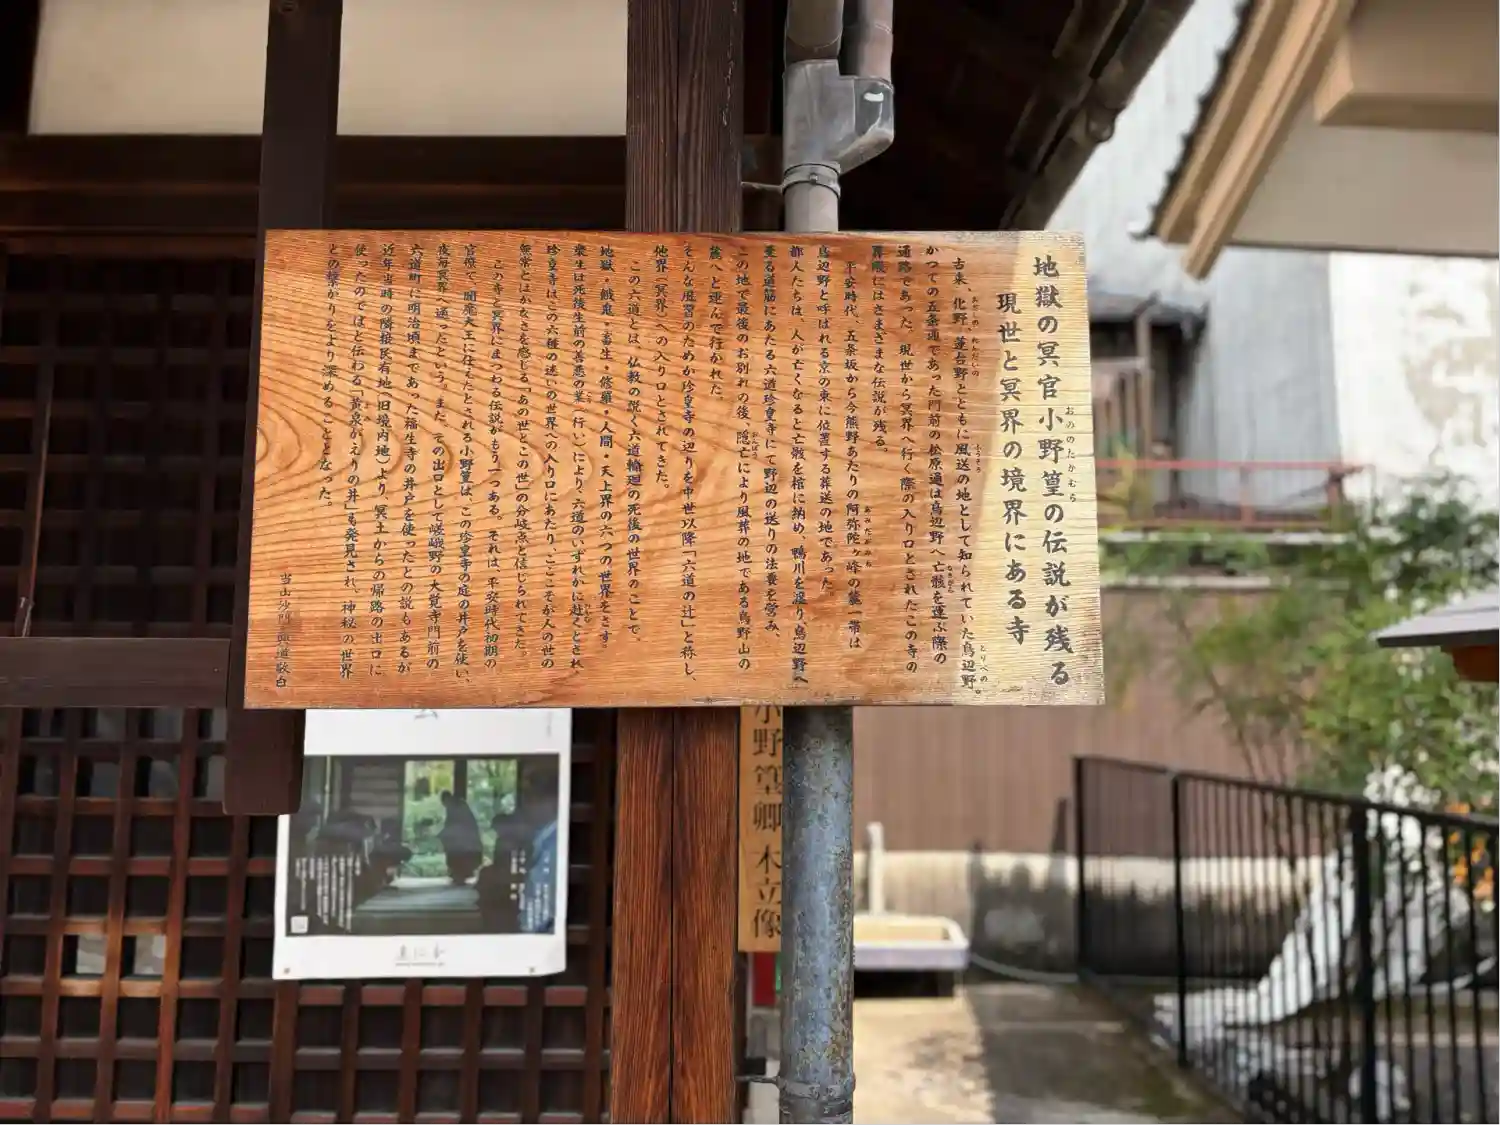 地獄の冥官小野篁の伝説が残る
おののたかむら
現世と冥界の境界にある寺
古来、化野、蓮台野とともに風送の地として知られていた鳥辺野。
あだしの れんだいの ふうそう とりべの
かつての五条通であった門前の松原通は鳥辺野へ亡骸を運ぶ際の
なきがら
通路であった。現世から冥界へ行く際の入り口とされたこの寺の
界隈にはさまざまな伝説が残る。
平安時代、五条坂から今熊野あたりの阿弥陀ヶ峰の麓一帯は
あみだがみね
鳥辺野と呼ばれる京の東に位置する葬送の地であった。
都人たちは、人が亡くなると亡骸を棺に納め、鴨川を渡り鳥辺野へ
至る道筋にあたる六道珍皇寺にて野辺の送りの法要を営み、
この地で最後のお別れの後、隠亡により風葬の地である鳥野山の
おんぼう
麓へと運んで行かれた
そんな風習のためか珍皇寺の辺りを中世以降「六道の辻」と称し、
他界（冥界）への入り口とされてきた。
この六道とは、仏教の説く六道輪廻の死後の世界のことで、
地獄・餓鬼・畜生・修羅・人間・天上界の六つの世界をさす。
衆生は死後生前の善悪の業（行い）により、六道のいずれかに赴くとされ、
珍皇寺はこの六種の迷いの世界への入り口にあたり、ここそが人の世の
無常とはかなさを感じる「あの世とこの世」の分岐点と信じられてきた。
この寺と冥界にまつわる伝説がもう一つある。それは、平安時代初期の
官僚で、閻魔大王に仕えたとされる小野篁は、この珍皇寺の庭の井戸を使い、
夜毎冥界へ通ったという。また、その出口として嵯峨野の大覚寺門前の
六道町に明治頃まであった福生寺の井戸を使ったとの説もあるが
近年当時の隣接民有地（旧境内地）より、冥土からの帰路の出口に
使ったのではと伝わる「黄泉がえりの井」も発見され、神秘の世界
よみ
との繋がりをより深めることとなった。
当山沙門 敬白
小野篁卿木立像